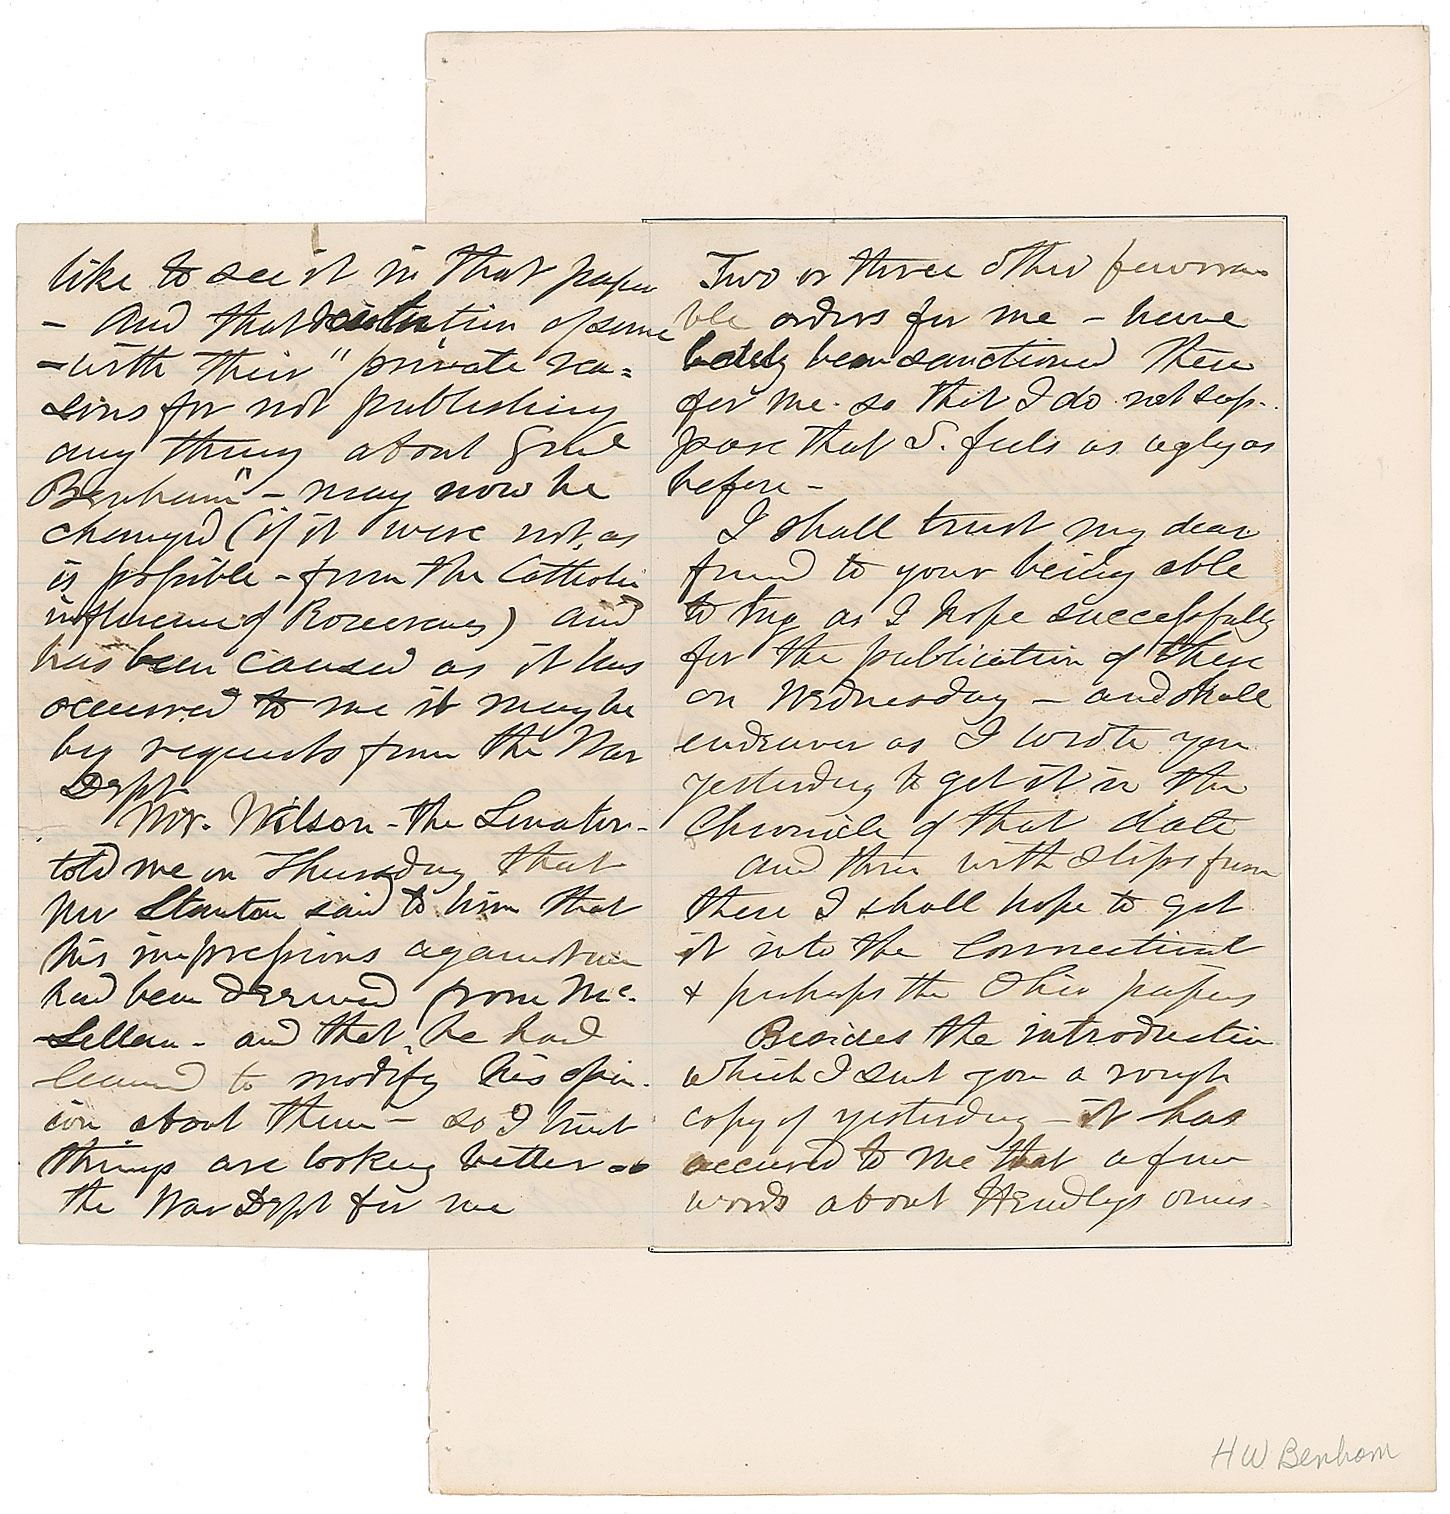 like to see it in that paper
- And that of some
- with their "private rea=
sons for not publishing
any thing about Genl
Benham" - may now be
changed (if it were not, as
is possible - from the Catholic
influence of Rosecrans) and
has been caused as it has
occurred to me it may be
by requests from the War
Dept.
Mr. Wilson - the Senator -
told me on Thursday that
Mr Stanton said to him that
his impressions against me
had been derived from Mc-
Lellan - and that he had
learned to modify his opin-
ion about them - so I trust
things are looking better at
the War Dept for me
Two or three other favora
ble orders for me - have
lately been sanctioned there
for me. so that I do not sup-
pose that S. feels as ugly as
before -
I shall trust my dear
friend to your being able
to try as I hope successfully
for the publication of these
on Wednesday - and shall
endeavor as I wrote you
yesterday to get it in the
Chronicle of that date
and then with slips from
there I shall hope to get
it into the Connecticut
& perhaps the Ohio papers
Besides the introduction
which I sent you a rough
copy of yesterday - it has
occurred to me that a few
words about Headleys omis-
H W Benham